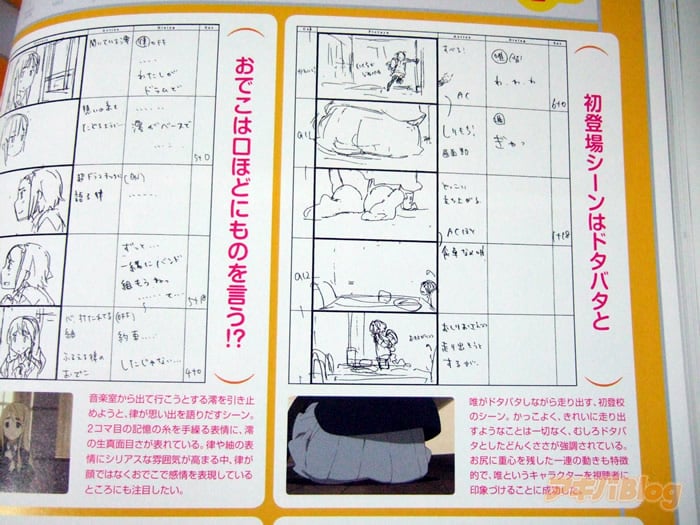 初登場シーンはドタバタと
Picture
Action
Dialog
Sec
すべる!
唯
わ、わ、わ
6+0
AC
しりもち!
画面動
唯
ぎゃっ
立ち上がる
AC
唯がドタバタしながら走り出す、初登校
のシーン。かっこよく、きれいに走り出
すようなことは一切なく、むしろドタバ
タとしたどんくささが強調されている。
お尻に重心を残した一連の動きも特徴
的で、唯というキャラクターを視聴者に
印象づけることに成功した。
おでこは口ほどにものを言う!?
Action
Dialog
Sec
聞いている澪
わたしが
ドラムで
想いの糸を
たどるように
澪がベースで
5+0
語る律
ずっと…
一緒にバンド
組もうねって
5+18
約束…
したじゃない…
ふるえる律の
おでこ
4+0
音楽室から出て行こうとする澪を引き止
めようと、律が思い出を語りだすシーン。
2コマ目の記憶の糸を手繰る表情に、澪
の生真面目さが表れている。律や紬の表
情にシリアスな雰囲気が高まる中、律が
顔ではなくおでこで感情を表現している
ところにも注目したい。
アキバBlog